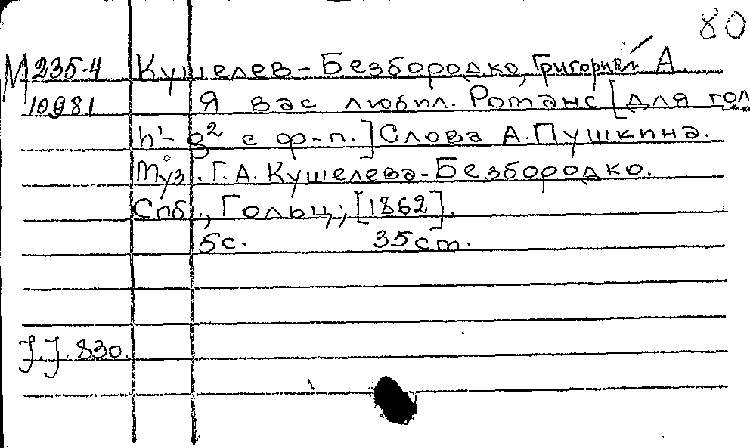 80
М 235-4 Кушелев-Безбородко, Григорий А.
10981 Я вас любил. Романс [для гол
h¹-g² с ф-п.] Слова А. Пушкина.
Муз. Г.А. Кушелева-Безбородко.
Спб., Гольц, [1862].
5с. 35 ст.
J.J. 830.